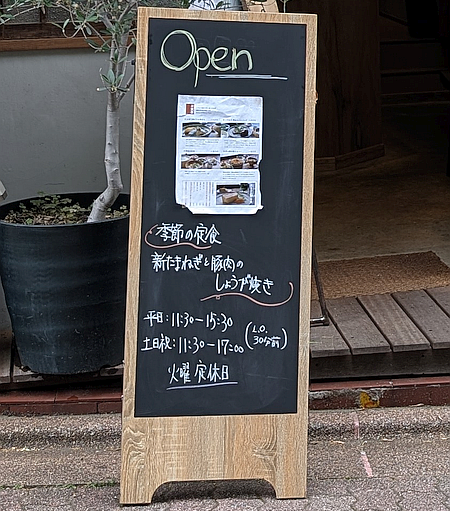 Open
季節の定食
新たまねぎと豚肉の
しょうが焼き
平日:11:30-15:30
土日祝:11:30-17:00 (L.O. 30分前)
火曜 定休日